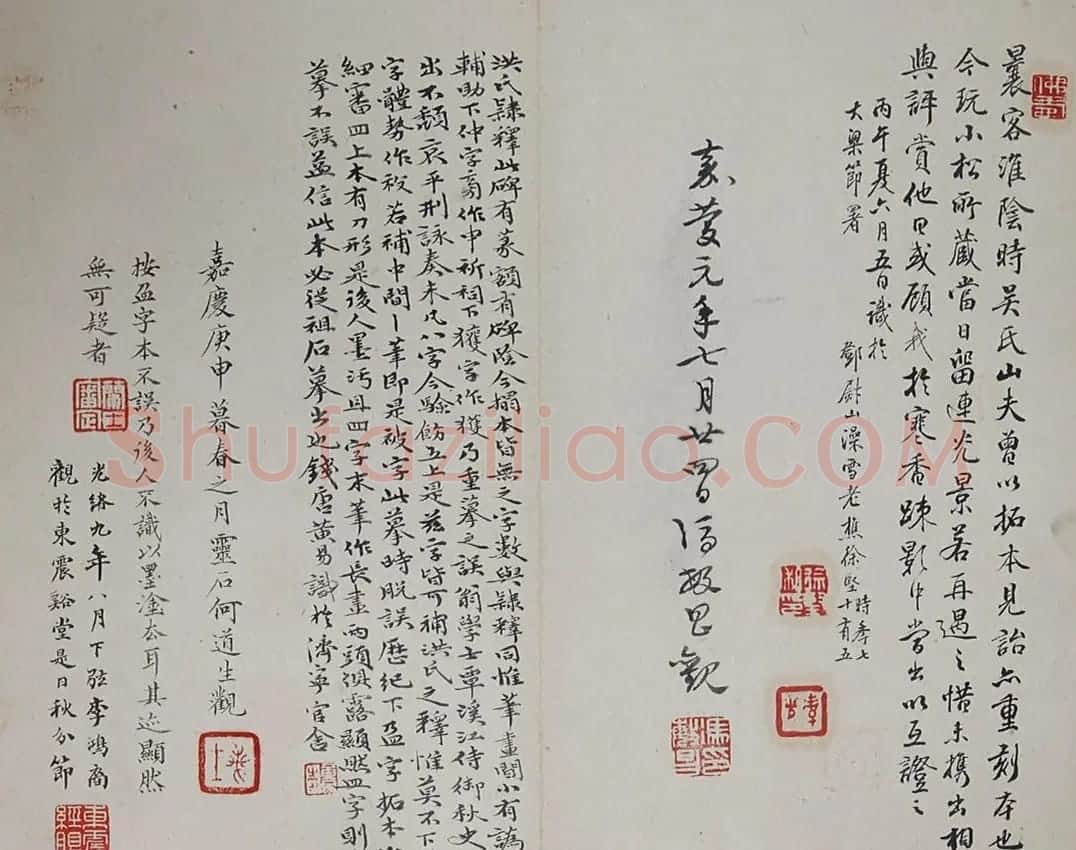 曩客淮陰時吴氏山夫曾以拓本見詒亦重刻本也
今玩小松所藏當日留連光景若再遇之惜未携出相
與評賞他日或顧我於寒香疎影中當出以互證之
丙午夏六月五日識於
大梁節署
鄧尉山澡雪老樵徐堅時年七
十有五
嘉慶元年七月廿四日馮敏昌觀
洪氏隸釋此碑有篆額有碑陰今搨本皆無之字數與隸釋同惟筆畫間小有譌
輔助下仲字旁作中祈祠下獲字作獲乃重摹之誤翁學士覃溪江侍御秋史
出不顡哀平刑詠奏未凡八字今驗飭五上是兹字皆可補洪氏之釋惟莫不下
字體勢作祋若補中間丨筆即是被字此摹時脱誤歷紀下盈字拓本
細審皿上木有刀形是後人墨污且四字末筆作長畫兩頭俱露顯然皿字則
摹不誤益信此本必從祖石摹出也錢唐黄易識於濟寧官舍
嘉慶庚申暮春之月靈石何道生觀
按盈字本不誤乃後人不識以墨塗去耳其迹顯然
無可疑者
光緒九年八月下弦李鴻裔
觀於東震谿堂是日秋分節
Shufaziliao.COM